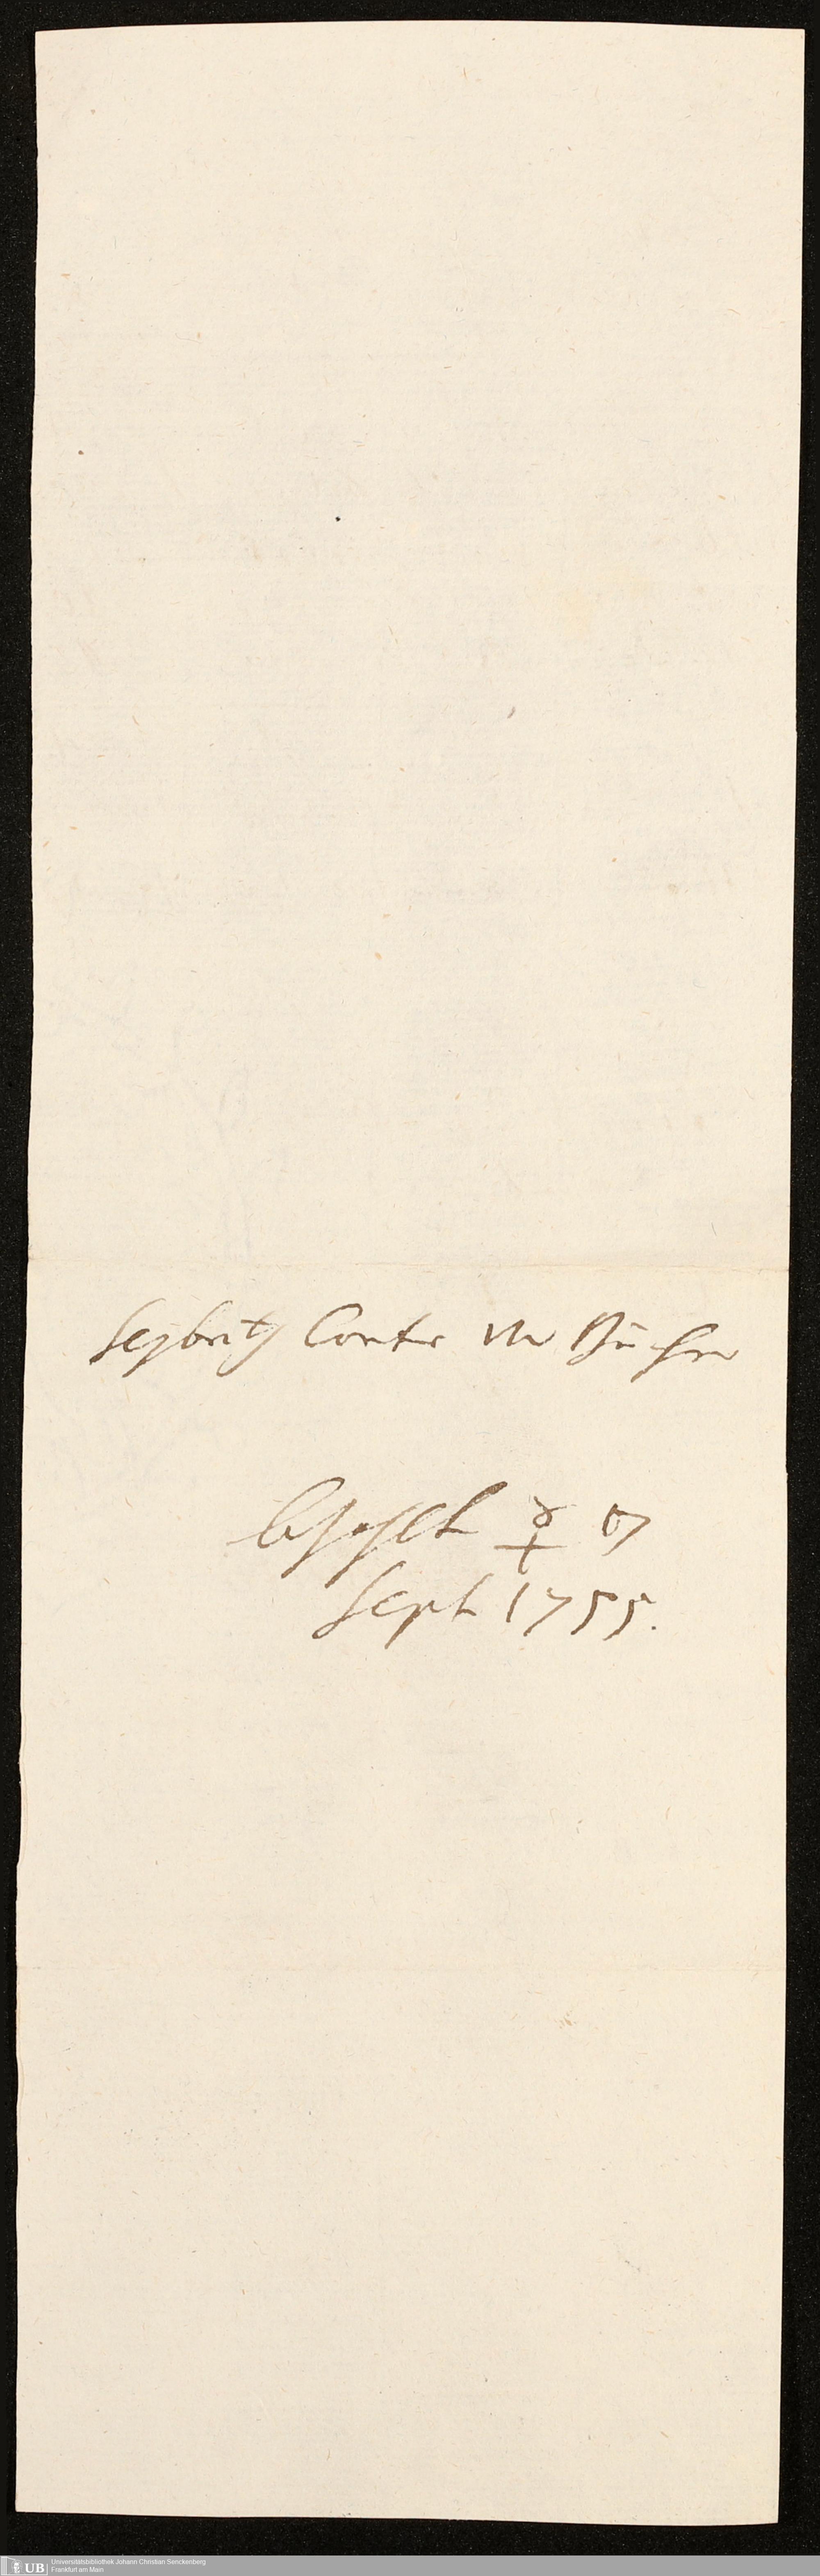 Seybritz Conto vor Bücher
bezahlt ☿ 17
Sept 1755.
Universitätsbibliothek Johann Christian Senckenberg
Frankfurt am Main
UB